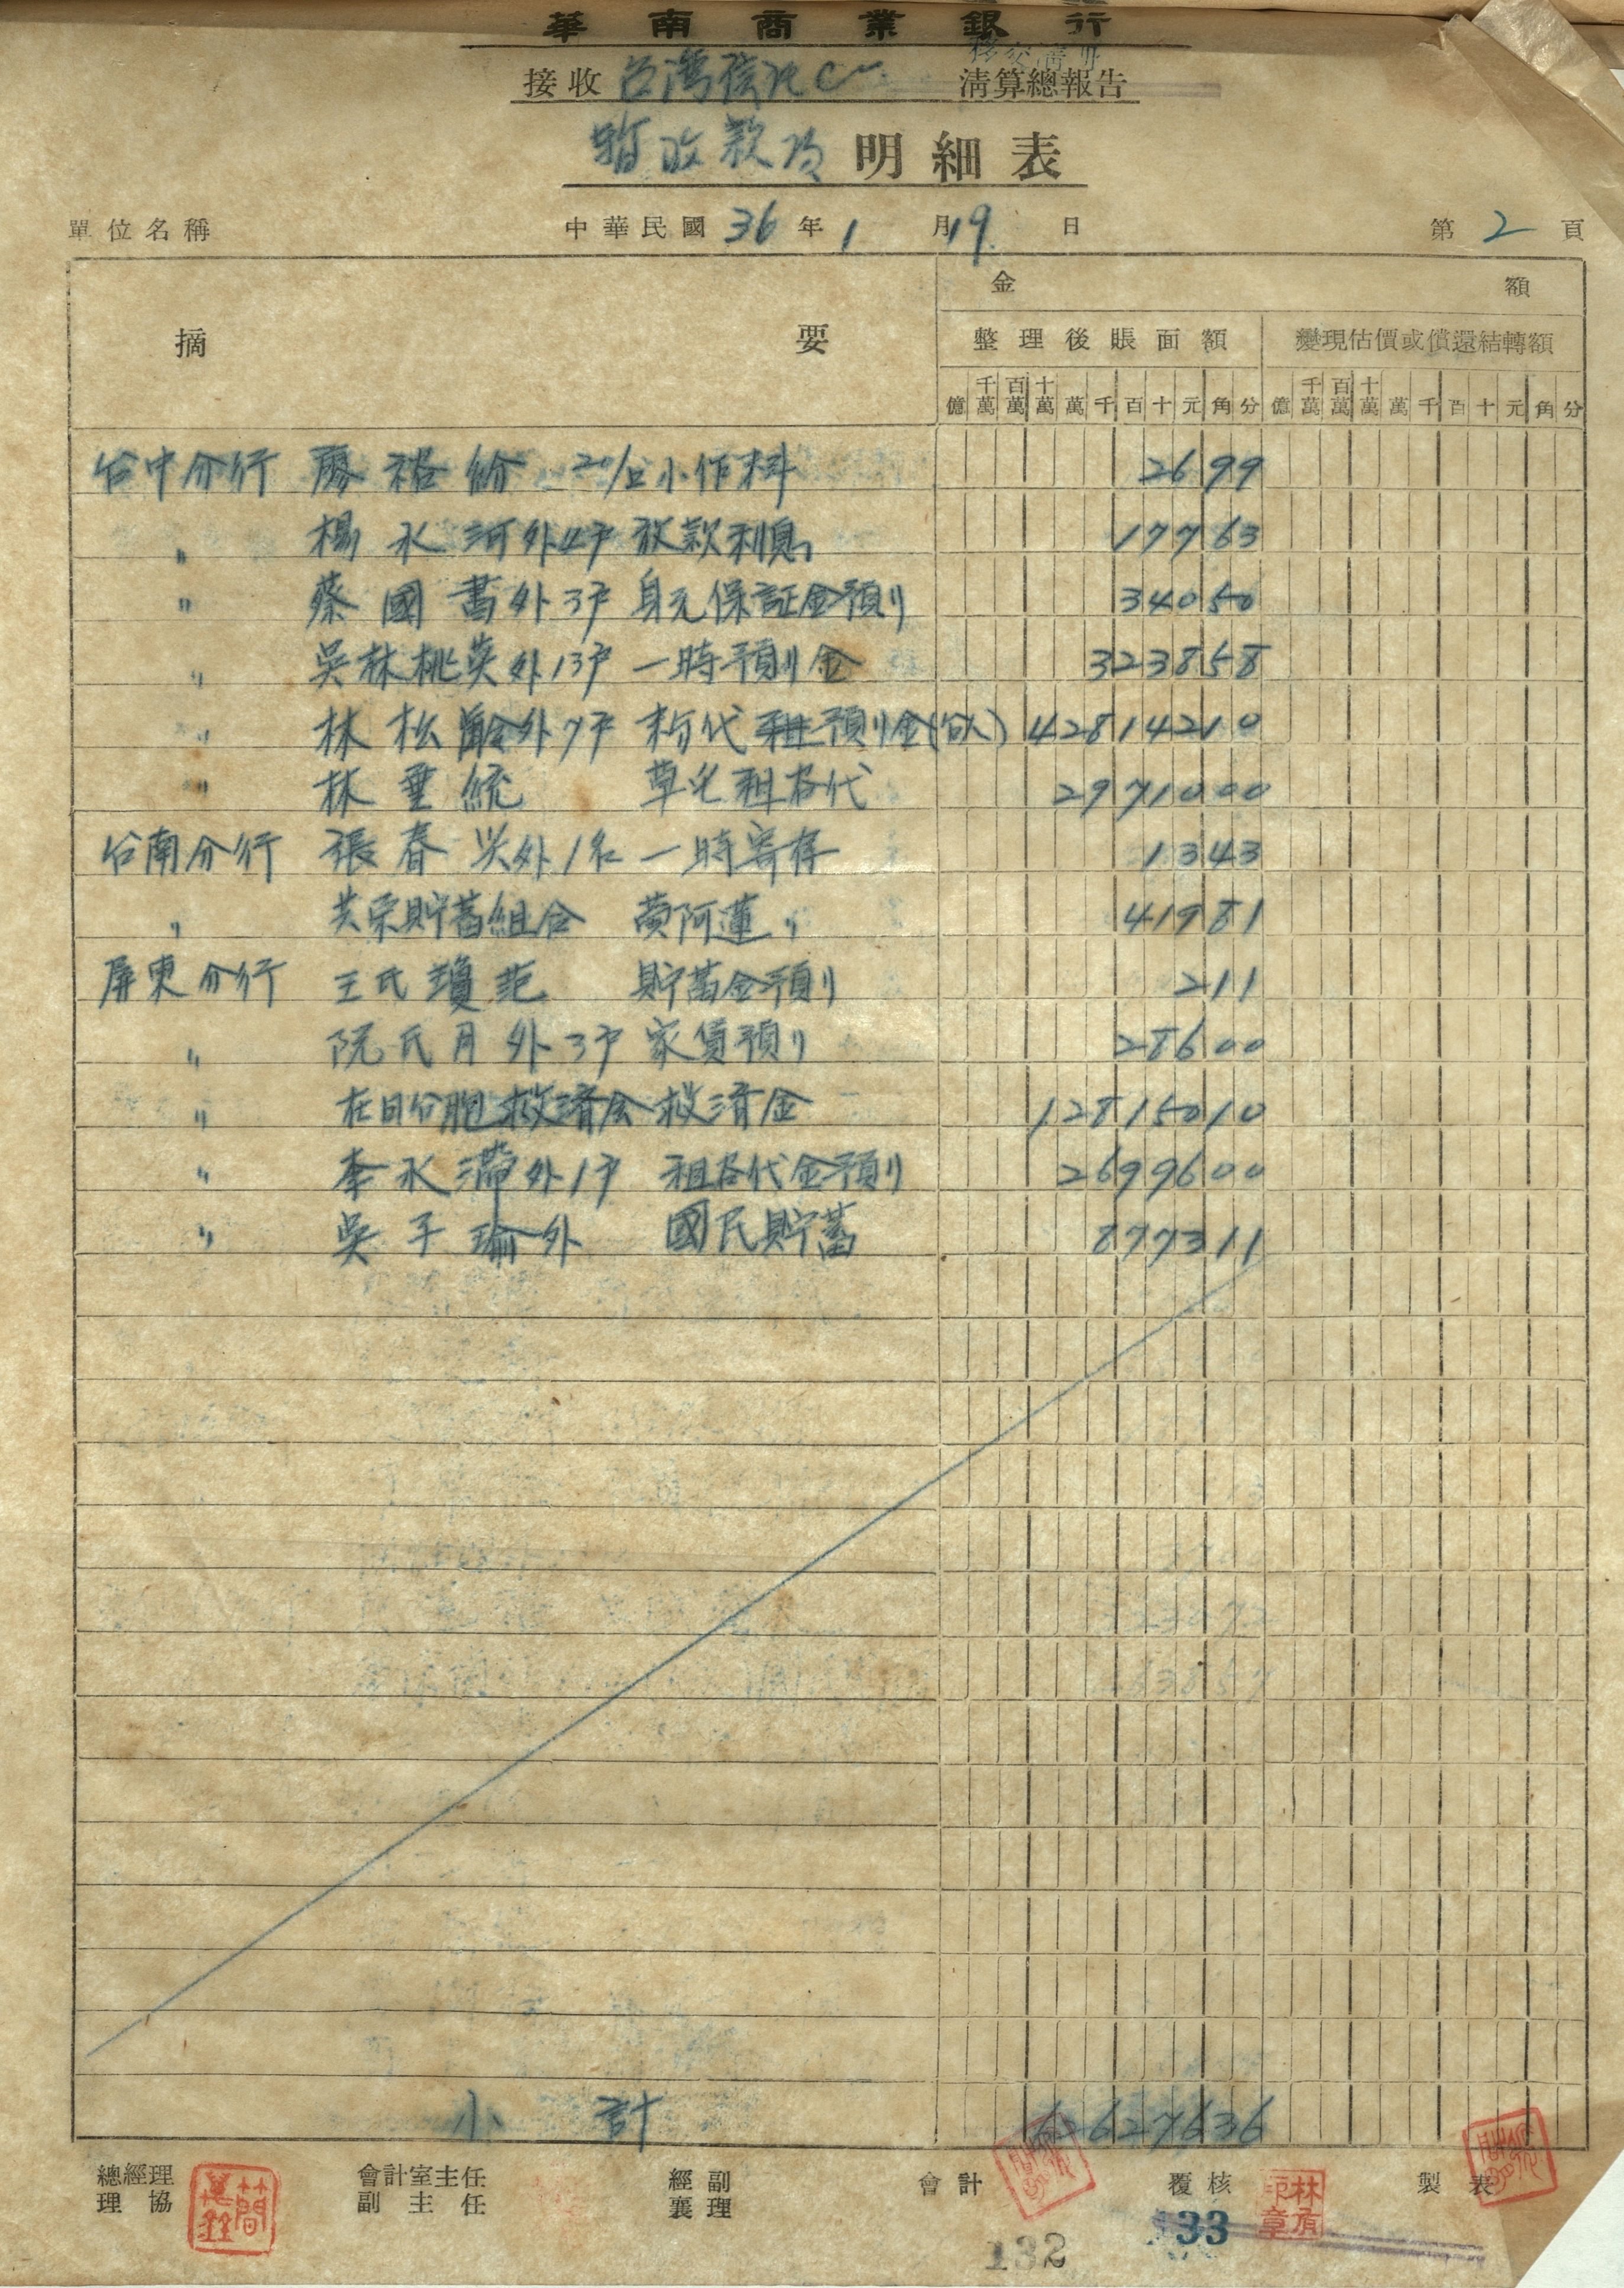 華南商業銀行
移交清冊
接收 台灣信託 清算總報告
暫收款項 明細表
單位名稱 中華民國 36 年 1 月 19 日 第 2 頁
摘要 金額
整理後賬面額 變現估價或償還結轉額
億 千萬 百萬 十萬 萬 千 百 十 元 角 分 億 千萬 百萬 十萬 萬 千 百 十 元 角 分
台中分行 廖裕紛 小作料 2699
〃 楊水河外4戶 放款利息 17763
〃 蔡國書外3戶 身元保証金預リ 34050
〃 吳林桃英外13戶 一時預リ金 323858
〃 林松齡外7戶 代租預リ金 42814210
〃 林垂統 租谷代 2971000
台南分行 張春 外1名 一時寄存 1343
〃 共榮貯蓄組合 黃阿蓮 〃 41981
屏東分行 王氏瓊 貯蓄金預リ 211
〃 阮氏月外3戶 家賃預リ 28600
〃 在日台胞救濟会 救濟金 12815010
〃 李水滯外1戶 租谷代金預リ 2699600
〃 吳子瑜外 國民貯蓄 877311
小計 62627636
總經理 會計室主任 經副 會計 覆核 製表
理協 副主任 襄理
林 印章
132
33